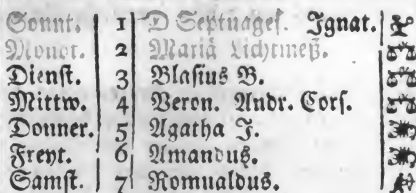 Sonnt. 1 D Septuages. Ignat.
Monat. 2 Mariä Lichtmeß.
Dienst. 3 Blasius B.
Mittw. 4 Veron. Andr. Cors.
Donner. 5 Agatha J.
Freyt. 6 Amanduß.
Samst. 7 Romualdus.